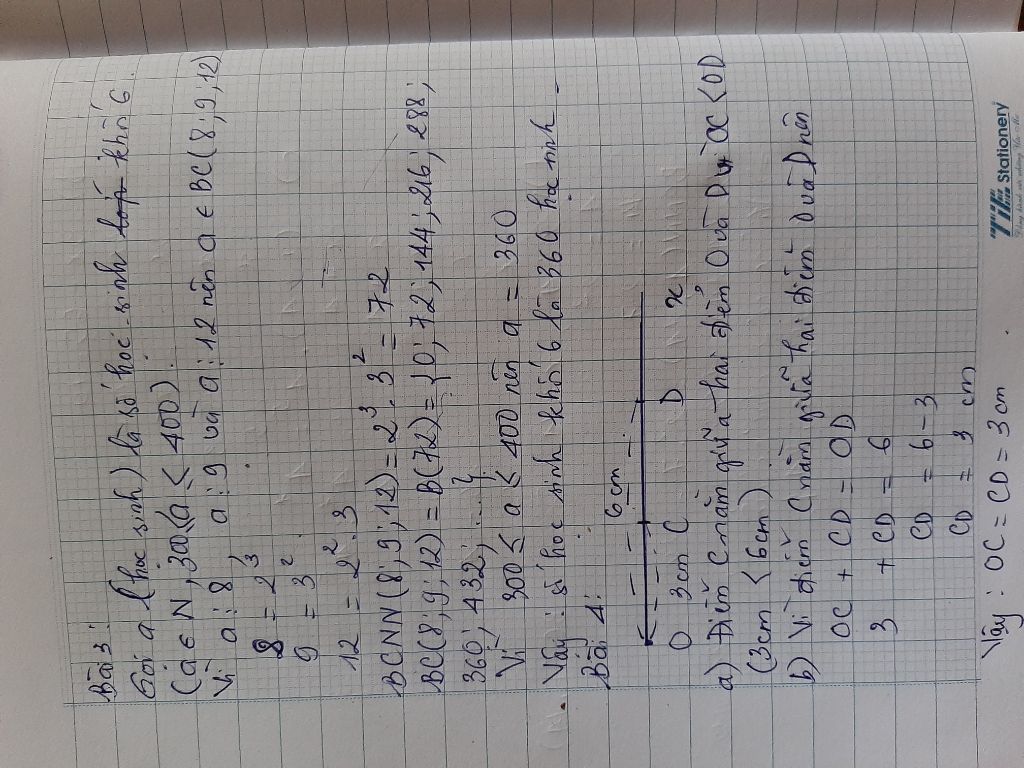 Bài 3:
Gọi a (học sinh) là số học sinh lớp khối 6.
(a ∈ N, 300 ≤ a ≤ 400).
Vì a ⋮ 8, a ⋮ 9 và a ⋮ 12 nên a ∈ BC(8; 9; 12)
8 = 2³
9 = 3².
12 = 2².3
BCNN(8; 9; 12) = 2³.3² = 72
BC(8; 9; 12) = B(72) = {0; 72; 144; 216; 288;
360; 432; ...}
Vì 300 ≤ a ≤ 400 nên a = 360
Vậy: số học sinh khối 6 là 360 học sinh.
Bài 4:
6cm
O 3cm C D x
a) Điểm C nằm giữa hai điểm O và D vì OC < OD
(3cm < 6cm)
b) Vì điểm C nằm giữa hai điểm O và D nên
OC + CD = OD
3 + CD = 6
CD = 6 - 3
CD = 3 cm
Vậy: OC = CD = 3cm.
TIE Stationery